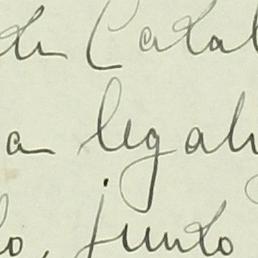 de Catal
a legali
lo, junto